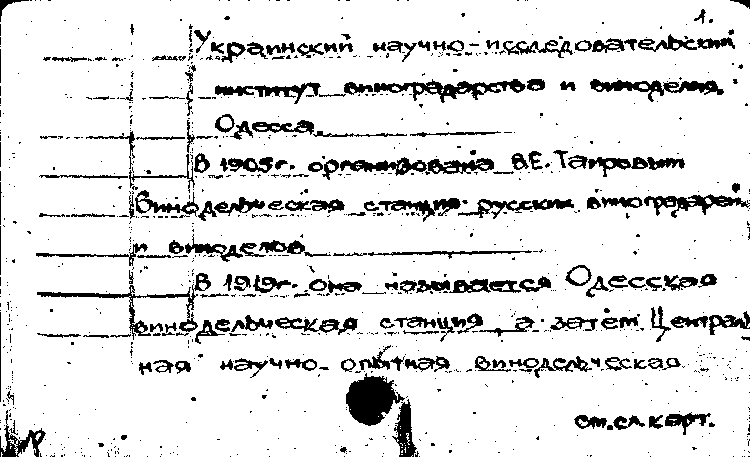 1.
Украинский научно-исследовательский
институт виноградарства и виноделия.
Одесса.
В 1905г. организована В.Е. Таировым
Винодельческая станция русских виноградарей
и виноделов.
В 1919г. она называется Одесская
винодельческая станция, а затем Централь
ная научно-опытная винодельческая
см.сл.карт.